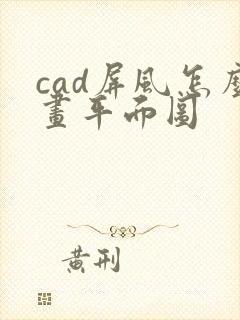 cad屏風怎麼
畫平面圖
黄刑